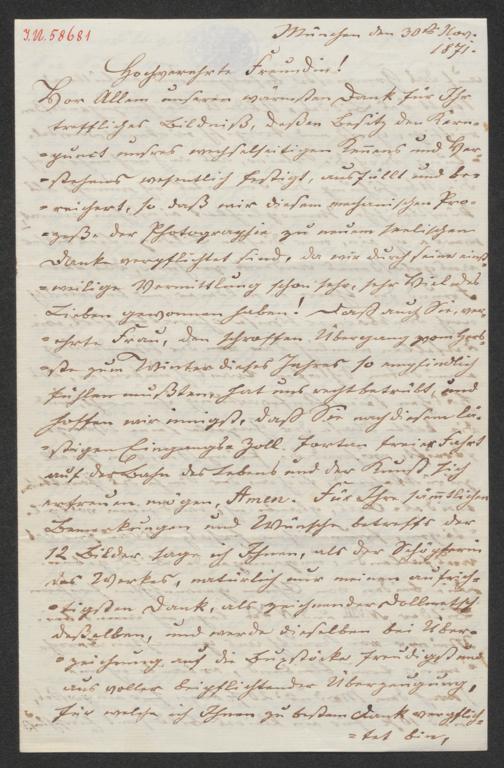 I.N. 58681
München den 30ten Nov.
1871.
Hochverehrte Freundin!
Vor Allem unseren wärmsten Dank für Ihr
treffliches Bildniß, deßen Besitz den Kern-
=punct unsres wechselseitigen Kennens und Ver-
=stehens wesentlich festigt, ausfüllt und be-
=reichert, so daß wir diesem mechanischen Pro-
=zeß der Photographie zu neuem seelischen
Danke verpflichtet sind, da wir durch seine
=weilige Vermittlung schon sehr, sehr Viel des
Lieben gewonnen haben! Daß auch Sie, ver-
ehrte Frau, den schroffen Übergang vom Herb-
=ste zum Winter dieses Jahres so empfindlich
fühlen mußten, hat uns recht betrübt, und
hoffen wir innigst, daß Sie nach diesem lä-
=stigen Eingangs-Zoll fortan freier Fahrt
auf der Bahn des Lebens und der Kunst sich
erfreuen mögen. Amen. Für Ihre sämmtlichen
Bemerkungen und Wünsche betreffs der
12 Bilder sage ich Ihnen, als der Schöpferin
des Werkes, natürlich nur meinen aufrich-
=tigsten Dank, als zeichnender Dollmetsch
deßelben, und werde dieselben bei Über-
=zeichnung auf die freudigst und
aus voller beipflichtender Überzeugung,
für welche ich Ihnen zu bestem Dank verpflich-
=tet bin,